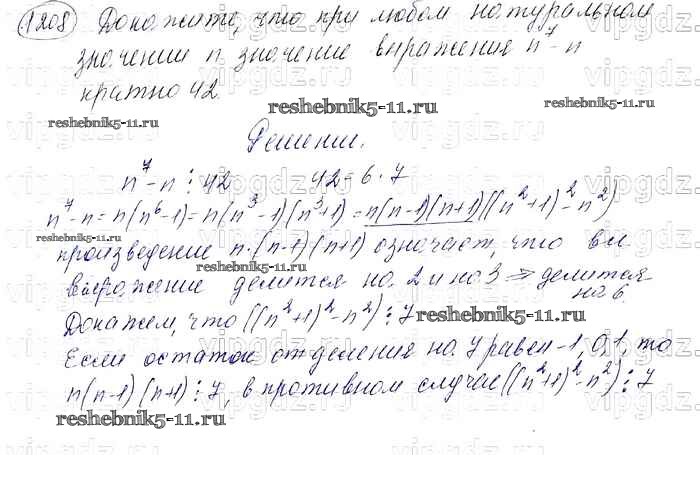 1208 Докажите, что при любом натуральном
значении n значение выражения n⁷-n
кратно 42.
reshebnik5-11.ru reshebnik5-11.ru
reshebnik5-11.ru
Решение.
n⁷-n ⋮ 42 42=6·7
n⁷-n=n(n⁶-1)=n(n³-1)(n³+1)=n(n-1)(n+1)((n²+1)²-n²)
reshebnik5-11.ru
произведение n·(n-1)(n+1) означает, что вы
reshebnik5-11.ru
выражение делится на 2 и на 3 ⇒ делится
на 6.
Докажем, что ((n²+1)²-n²) ⋮ 7
reshebnik5-11.ru
Если остаток от деления на 7 равен -1, 0, 1, то
n(n-1)(n+1) ⋮ 7, в противном случае ((n²+1)²-n²) ⋮ 7
reshebnik5-11.ru
vipgdz.ru